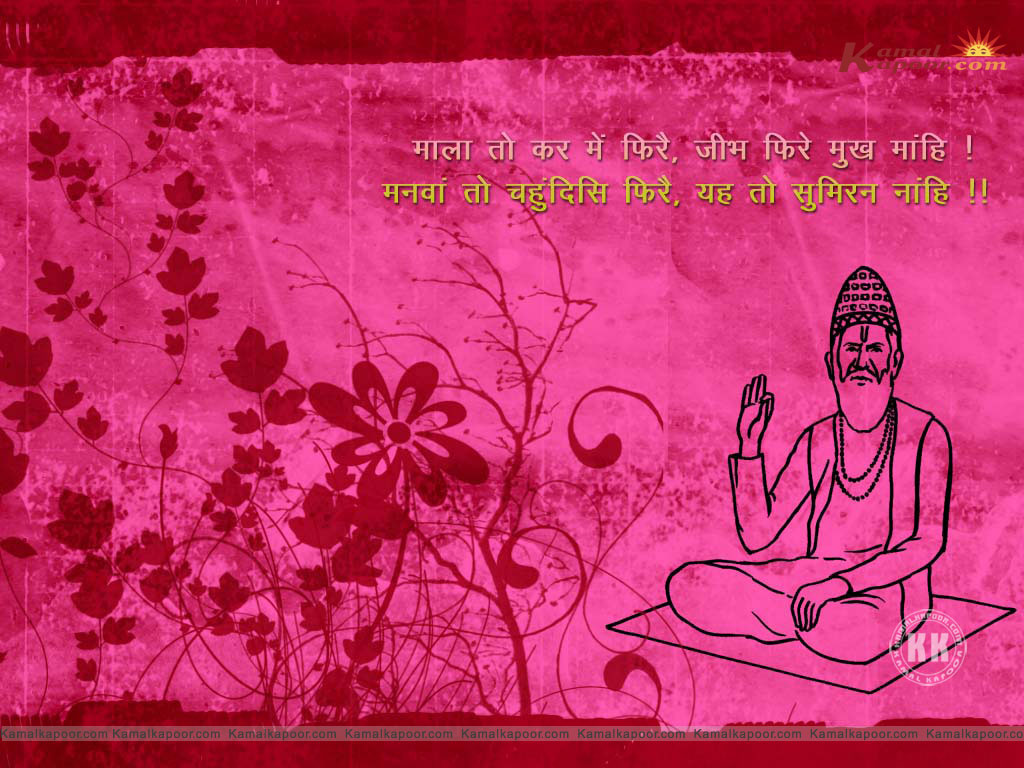 Kamal
Kapoor.com
माला तो कर में फिरै, जीभ फिरे मुख मांहि !
मनवां तो चहुंदिसि फिरै, यह तो सुमिरन नांहि !!
KAMALKAPOOR.COM
KK
KAMAL KAPOOR
Kamalkapoor.com Kamalkapoor.com Kamalkapoor.com Kamalkapoor.com Kamalkapoor.com Kamalkapoor.com Kamalkapoor.com Kamalkapoor.com Kamalkapoor.com